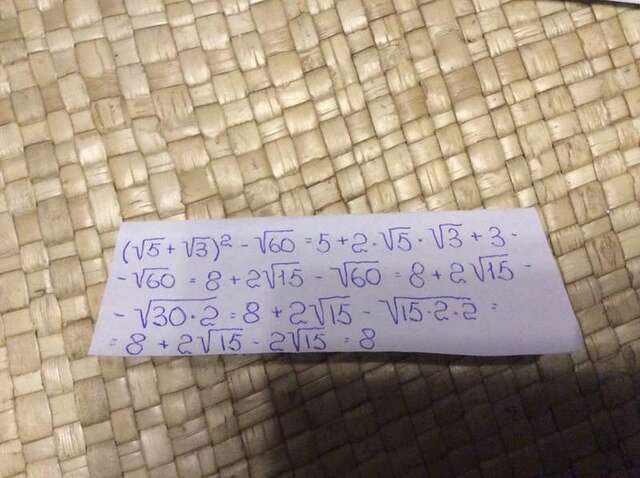 (√5 + √3)² - √60 = 5 + 2 · √5 · √3 + 3 -
- √60 = 8 + 2√15 - √60 = 8 + 2√15 -
- √30·2 = 8 + 2√15 - √15·2·2 =
= 8 + 2√15 - 2√15 = 8